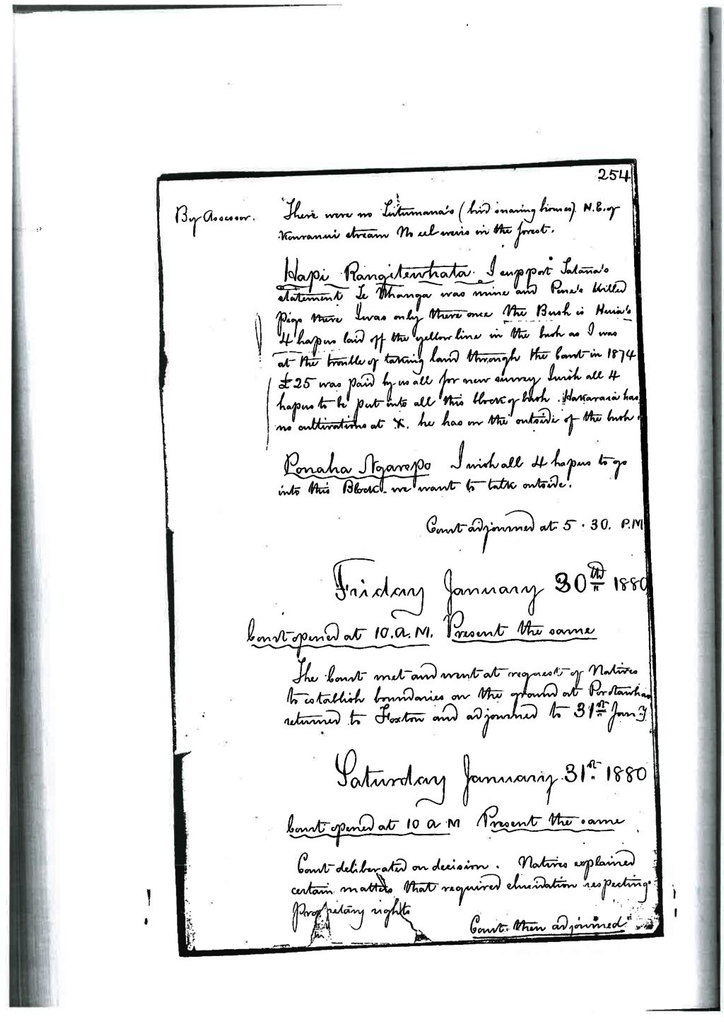 254
By Assessor. There were no Tutumana's (bird snaring houses) N.E. of
stream No eel weirs in the forest.
Hapi Rangitewhata. I support
statement Te Whanga was mine and killed
pigs there I was only there once the Bush is Huia's
4 hapus laid off the yellow line in the bush as I was
at the trouble of taking land through the Court in 1874
£25 was paid by us all for new survey I wish all 4
hapus to be put into all this block of bush. has
no cultivations at X. he has on the outside of the bush.
Ponaha Ngarepo I wish all 4 hapus to go
into this Block. we want to talk outside.
Court adjourned at 5.30. P.M
Friday January 30th 1880
Court opened at 10.A.M. Present the same
The Court met and went at request of Natives
to establish boundaries on the ground at
returned to Foxton and adjourned to 31st Jany
Saturday January 31st 1880
Court opened at 10 A M Present the same
Court deliberated on decision. Natives explained
certain matters that required elucidation respecting
proprietary rights
Court then adjourned